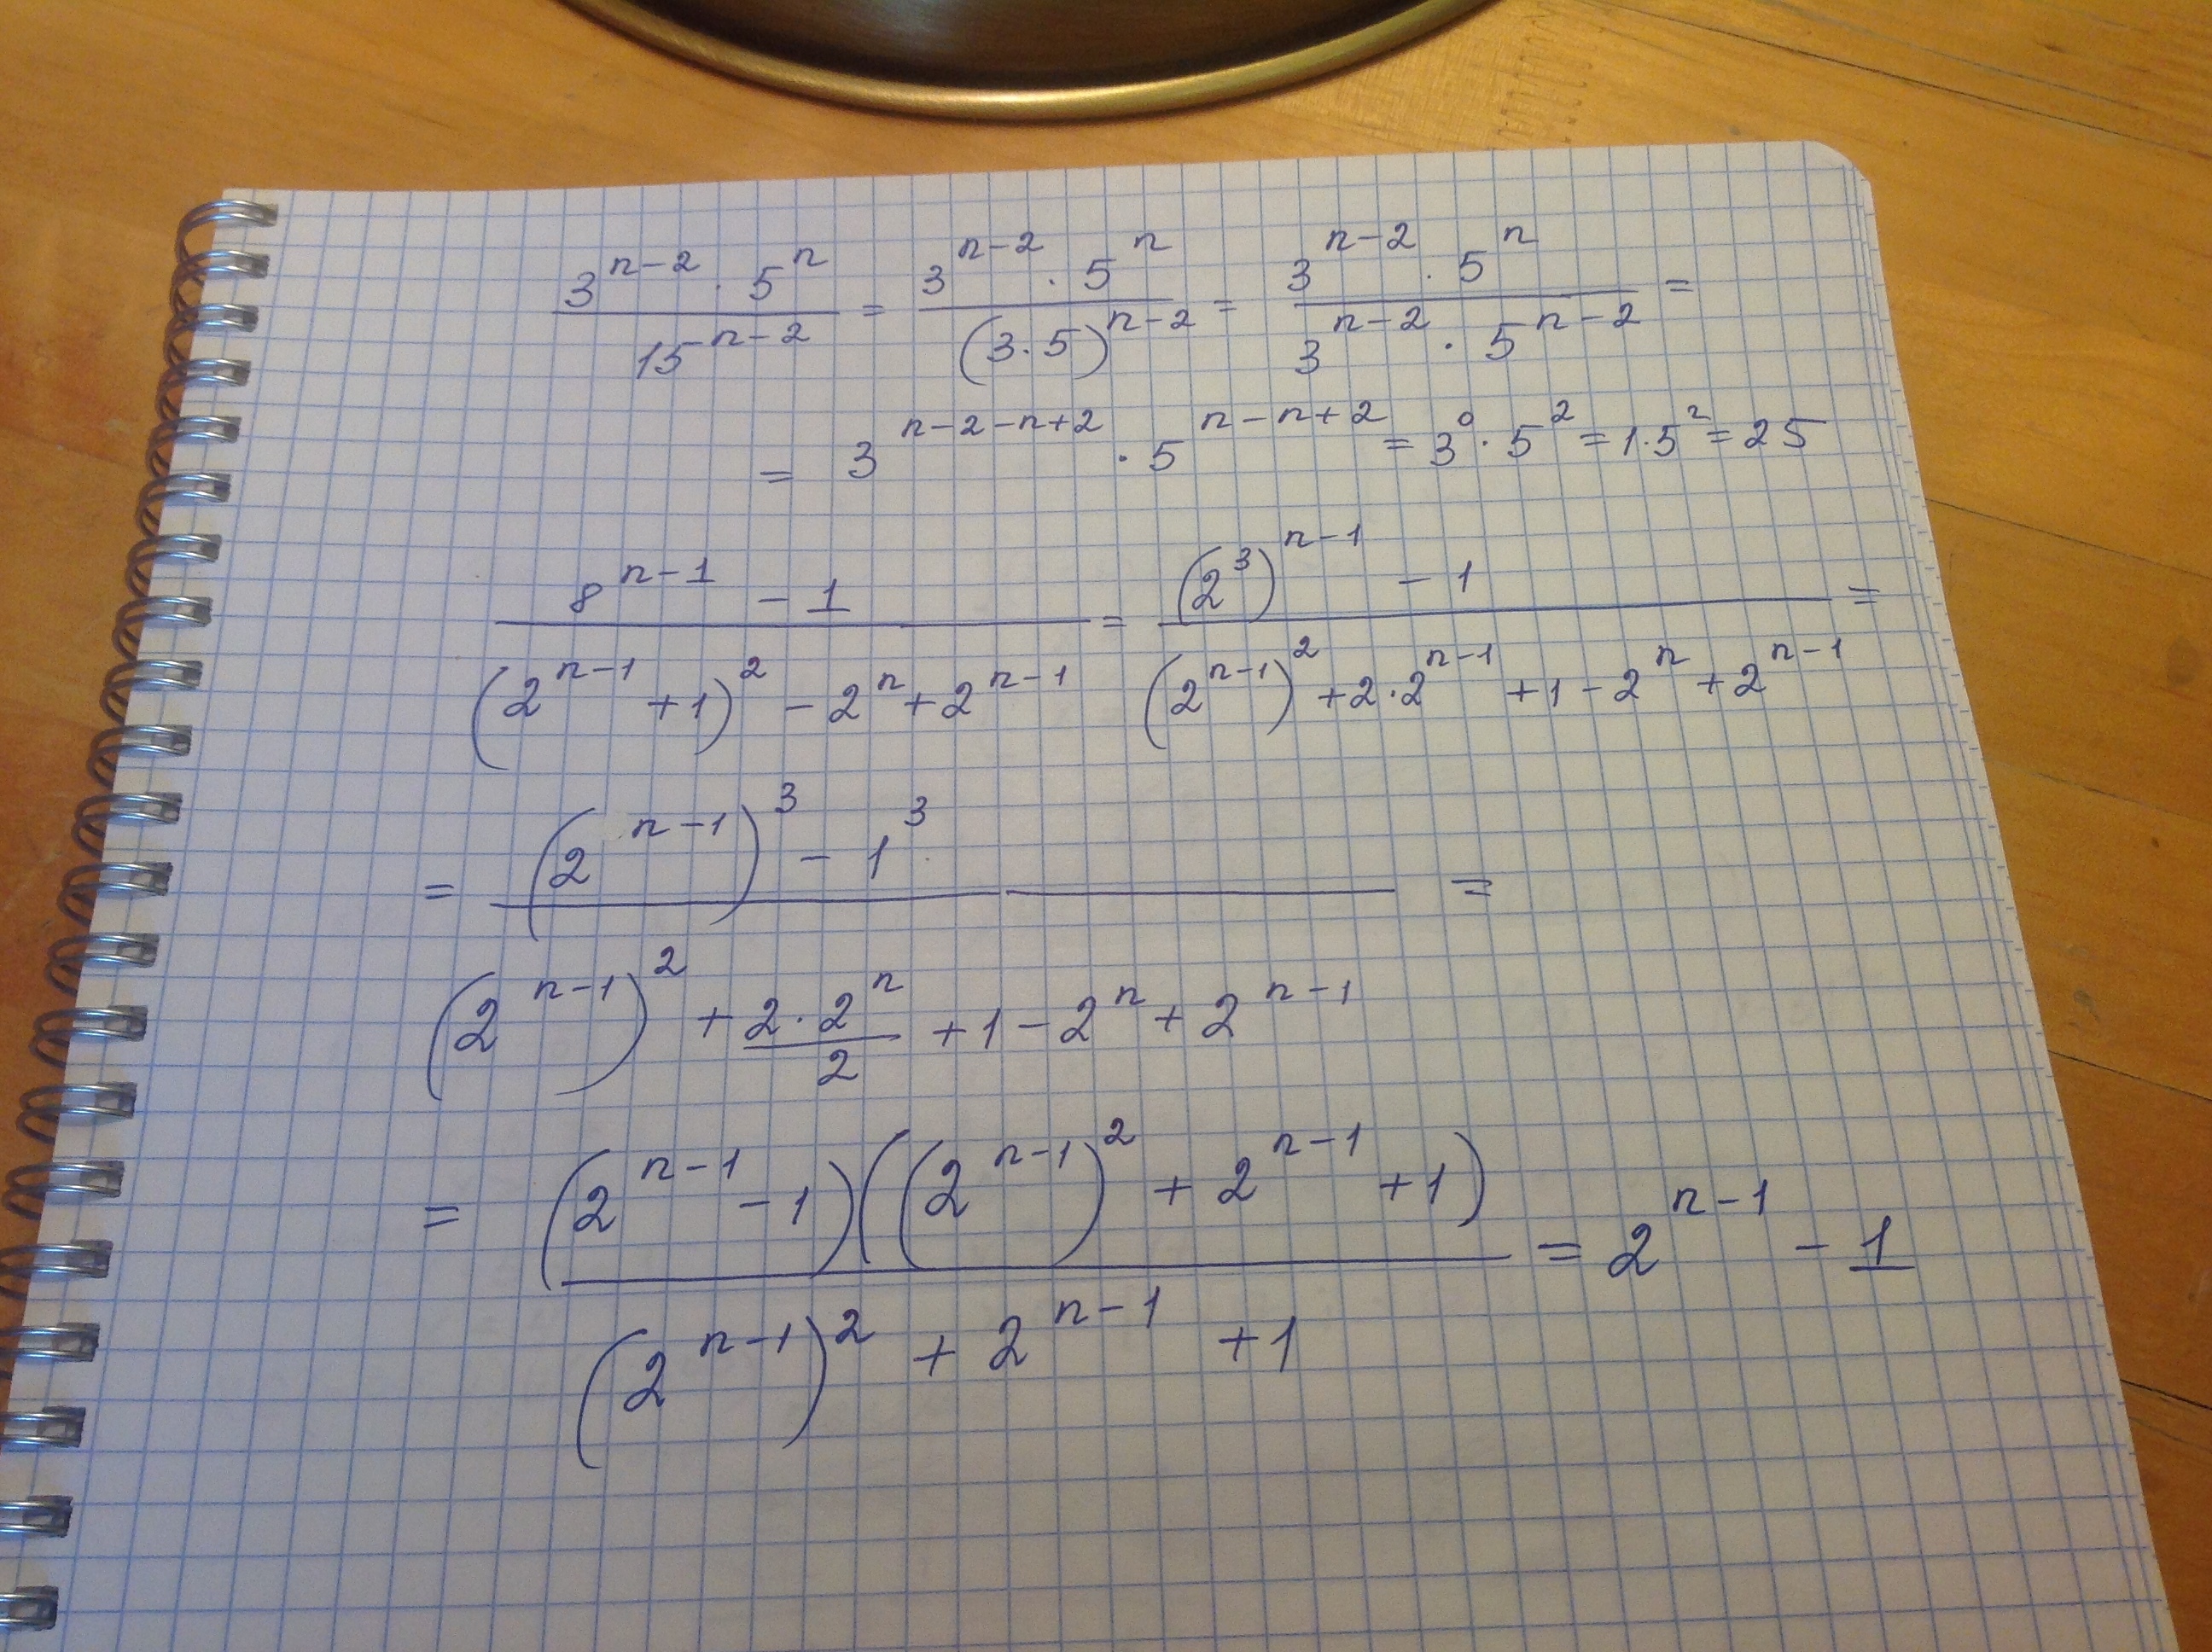 \frac{3^{n-2} \cdot 5^n}{15^{n-2}} = \frac{3^{n-2} \cdot 5^n}{(3 \cdot 5)^{n-2}} = \frac{3^{n-2} \cdot 5^n}{3^{n-2} \cdot 5^{n-2}} =
= 3^{n-2-n+2} \cdot 5^{n-n+2} = 3^0 \cdot 5^2 = 1 \cdot 5^2 = 25
\frac{8^{n-1} - 1}{(2^{n-1} + 1)^2 - 2^n + 2^{n-1}} = \frac{(2^3)^{n-1} - 1}{(2^{n-1})^2 + 2 \cdot 2^{n-1} + 1 - 2^n + 2^{n-1}} =
= \frac{(2^{n-1})^3 - 1^3}{(2^{n-1})^2 + \frac{2 \cdot 2^n}{2} + 1 - 2^n + 2^{n-1}} =
= \frac{(2^{n-1} - 1)((2^{n-1})^2 + 2^{n-1} + 1)}{(2^{n-1})^2 + 2^{n-1} + 1} = 2^{n-1} - 1